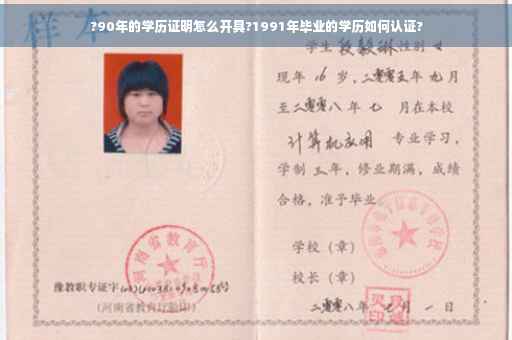 ?90年的学历证明怎么开具?1991年毕业的学历如何认证?
样本
学生段毅琳性别女
现年16岁,二零零五年九月
至二零零八年七月在本校
计算机应用 专业学习,
学制三年,修业期满,成绩
合格,准予毕业。
学校(章)
校长(章)
二零零八年七月一日
河南省教育厅
豫教职专证字
(河南省教育厅验印)